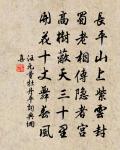 長平山上紫雲封
蜀老相傳隱者宮
高樹蔽天三十里
開花十丈舞春風
汪元量牡丹平詞典網